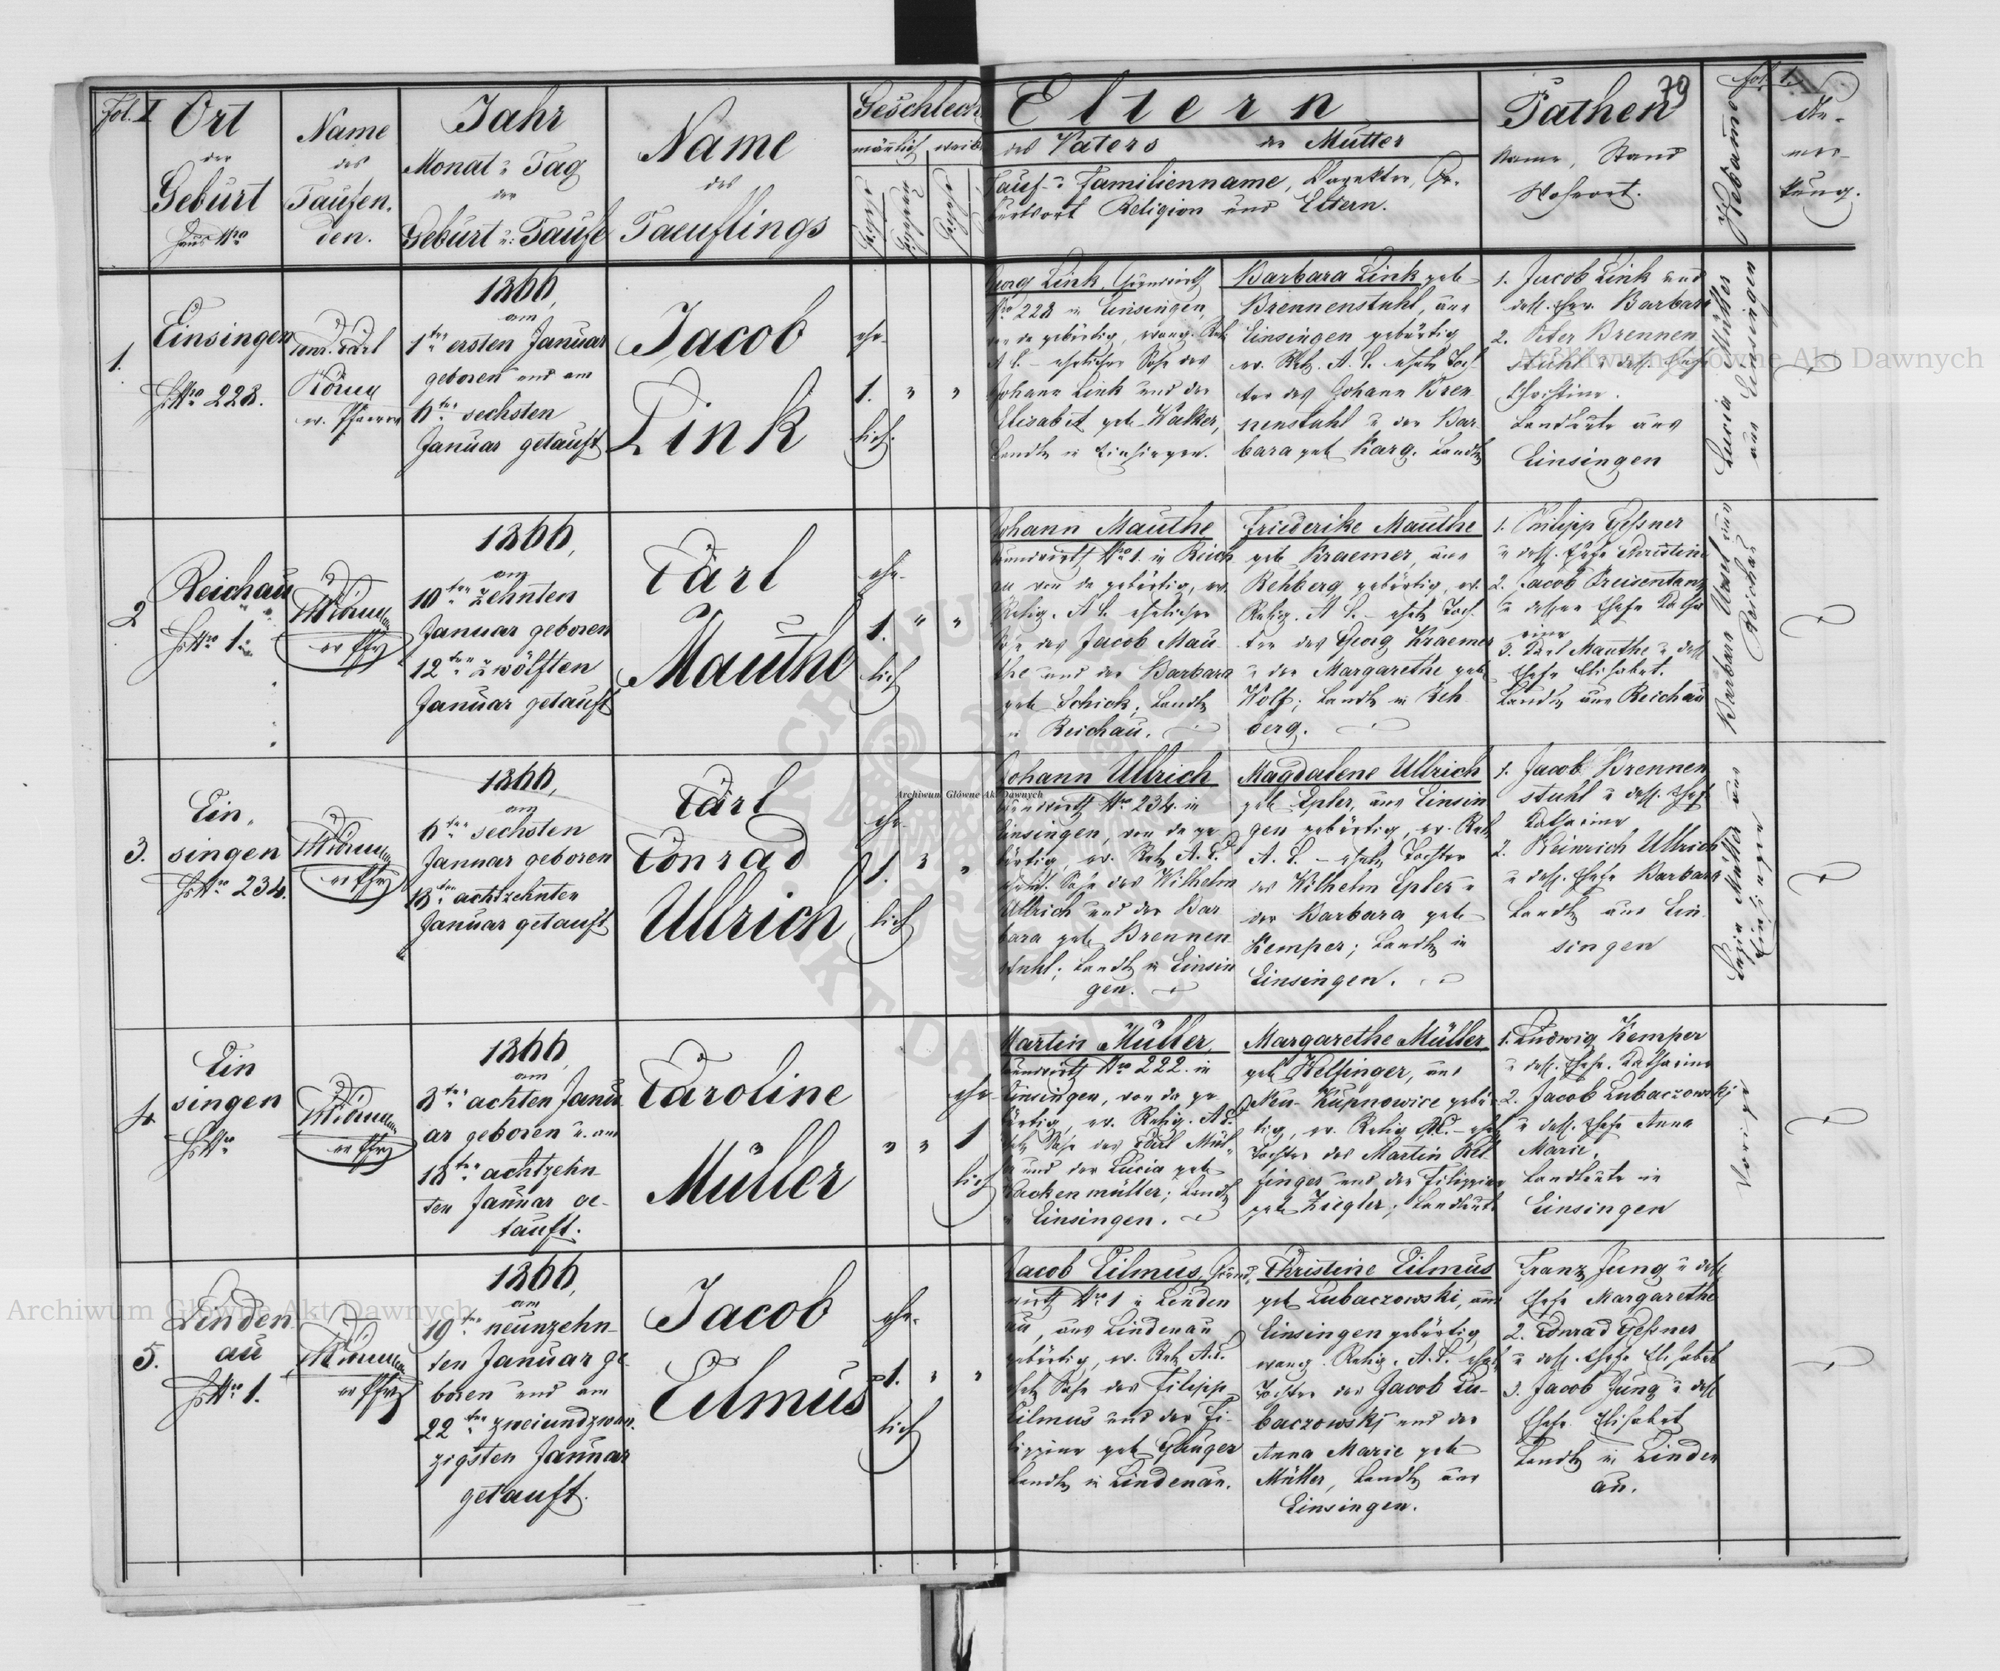 Fol. I
Ort
der
Geburt
Haus Nro
Name
des
Taufen-
den.
Jahr
Monat u Tag
der
Geburt u. Taufe
Name
des
Taeuflings
Geschlecht
männlich weibl
Eltern
des Vaters der Mutter
Tauf- u Familienname, Charakter, Ge-
burtsort Religion und Eltern.
Pathen
Name, Stand
Wohnort.
79
Hebamme
fol. 1.
An-
mer-
kung.
1.
Einsingen
HNro 228.
Carl
König
ev. Pfarrer
1866,
am
1ten ersten Januar
geboren und am
6ten sechsten
Januar getauft
Jacob
Link
ehe-
1. " "
lich.
Georg Link, Grundwirth
Nro 228 in Einsingen,
von da gebürtig, evang. Rel.
A. C. – ehelicher Sohn des
Johann Link und der
Elisabet geb. Walker,
Landl. in Einsingen.
Barbara Link geb
Brennenstuhl, aus
Einsingen gebürtig
ev. Rel. A. C. ehel. Toch-
ter des Johann Bren
nenstuhl u der Bar
bara geb Karg. Landl
1. Jacob Link und
dess. Ehew. Barbara
2. Peter Brennen
stuhl u dess. Ehef
Christine.
Landleute aus
Einsingen
Lucia Müller
aus Einsingen
2
Reichau
HNro 1.
König
ev Pfr
1866,
am
10ten zehnten
Januar geboren
12ten zwölften
Januar getauft
Carl
Mauthe
ehe-
1. " "
lich
Johann Mauthe
Grundwirth Nro 1. in Reich
au von da gebürtig, ev.
Relig. A. C. ehelicher
Sohn des Jacob Mau
the und der Barbara
geb Schick; Landl
in Reichau.
Friederike Mauthe
geb Kraemer, aus
Rehberg gebürtig, ev.
Relig. A. C. – ehel. Toch-
ter des Georg Kraemer
u der Margarethe geb
Wolf; Landl in Reh
berg.
1. Philipp Gessner
u dess. Ehefr Christine
2. Jacob Kreisentanz
u dessen Ehefr Katha
rine
3. Carl Mauthe u dess
Ehefr Elisabet.
Landl aus Reichau
Barbara
Reichau
3.
Ein,
singen
HNro 234.
König
ev Pfr
1866,
am
6ten sechsten
Januar geboren
18ten achtzehnten
Januar getauft
Carl
Conrad
Ullrich
ehe-
1. " "
lich
Johann Ullrich
Grundwirth Nro 234. in
Einsingen, von da ge
bürtig, ev. Rel. A. C.
ehel. Sohn des Wilhelm
Ullrich und der Bar
bara geb Brennen
stuhl; Landl in Einsin
gen.
Magdalene Ullrich
geb Epler, aus Einsin
gen gebürtig, ev. Rel
A. C. – ehel. Tochter
des Wilhelm Epler u
der Barbara geb
Kemper; Landl in
Einsingen.
1. Jacob Brennen
stuhl u dess. Ehef
Katharine
2. Heinrich Ullrich
u dess. Ehefr Barbara
Landl aus Ein
singen
Müller aus
Einsingen
4
Ein
singen
HNro
König
ev Pfr
1866,
am
8ten achten Janu
ar geboren u. am
18ten achtzehn
ten Januar ge-
tauft.
Caroline
Müller
ehe
" " 1
lich
Martin Müller,
Grundwirth Nro 222. in
Einsingen, von da ge
bürtig, ev. Relig. A. C.
ehel. Sohn des Carl Mül-
ler und der Lucia geb
Backenmüller; Landl
in Einsingen.
Margarethe Müller
geb Kelsinger, aus
Neu-Kupnowice gebür
tig, ev. Relig A. C. – ehel
Tochter des Martin Kel
singer und der Filippine
geb Ziegler; Landleute
1. Ludwig Kemper
u dess. Ehefr. Katharine
2. Jacob Lubaczowski
u dess. Ehefr Anna
Marie,
Landleute in
Einsingen
Vorige
5.
Linden
au
HNro 1.
König
ev Pfr
1866,
am
19ten neunzehn-
ten Januar ge-
boren und am
22ten zweiundzwan-
zigsten Januar
getauft.
Jacob
Eilmus
ehe-
1. " "
lich
Jacob Eilmus, Grund-
wirth Nro 1 in Linden
au, aus Lindenau
gebürtig, ev. Rel. A. C.
ehel Sohn des Filipp
Eilmus und der Fi-
lippine geb Gauger
Landl in Lindenau.
Christine Eilmus
geb Lubaczowski, aus
Einsingen gebürtig
evang. Relig. A. C. ehel
Tochter des Jacob Lu-
baczowski und der
Anna Marie geb
Müller, Landl aus
Einsingen.
Franz Jung u dess
Ehefr Margarethe
2. Conrad Gessner
u dess. Ehefr Elisabet
3. Jacob Jung u dess
Ehefr. Elisabet
Landl in Linden
au.
Archiwum Główne Akt Dawnych
Archiwum Główne Akt Dawnych
Archiwum Główne Akt Dawnych